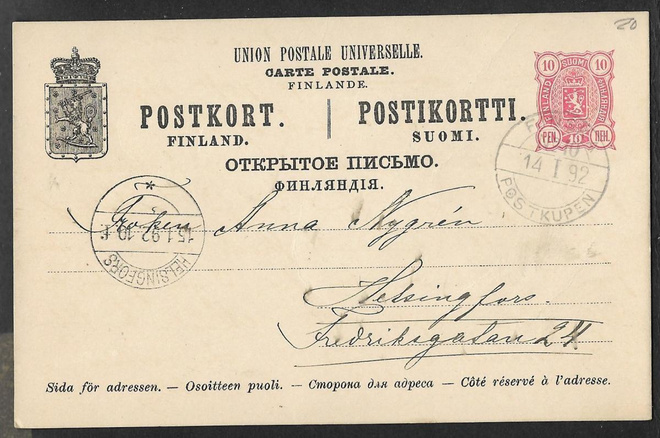 20
UNION POSTALE UNIVERSELLE.
CARTE POSTALE.
FINLANDE.
POSTKORT. | POSTIKORTTI.
FINLAND. SUOMI.
ОТКРЫТОЕ ПИСЬМО.
ФИНЛЯНДІЯ.
10 SUOMI 10
FINLAND
PEN. 10 ПЕН.
14 I 92
POSTKUPEN
15.1.92.10
HELSINGFORS
Fröken Anna Nygrén
Helsingfors.
Fredriksgatan 24
Sida för adressen. — Osoitteen puoli. — Сторона для адреса — Côté réservé à l'adresse.